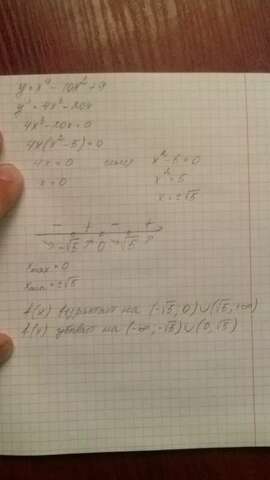 y = x⁴ - 10x² + 9
y' = 4x³ - 20x
4x³ - 20x = 0
4x(x² - 5) = 0
4x = 0 или x² - 5 = 0
x = 0 x² = 5
x = ±√5
- + - +
-√5 0 √5
xmax = 0
xmin = ±√5
f(x) возрастает на (-√5; 0) ∪ (√5; +∞)
f(x) убывает на (-∞; -√5) ∪ (0; √5)